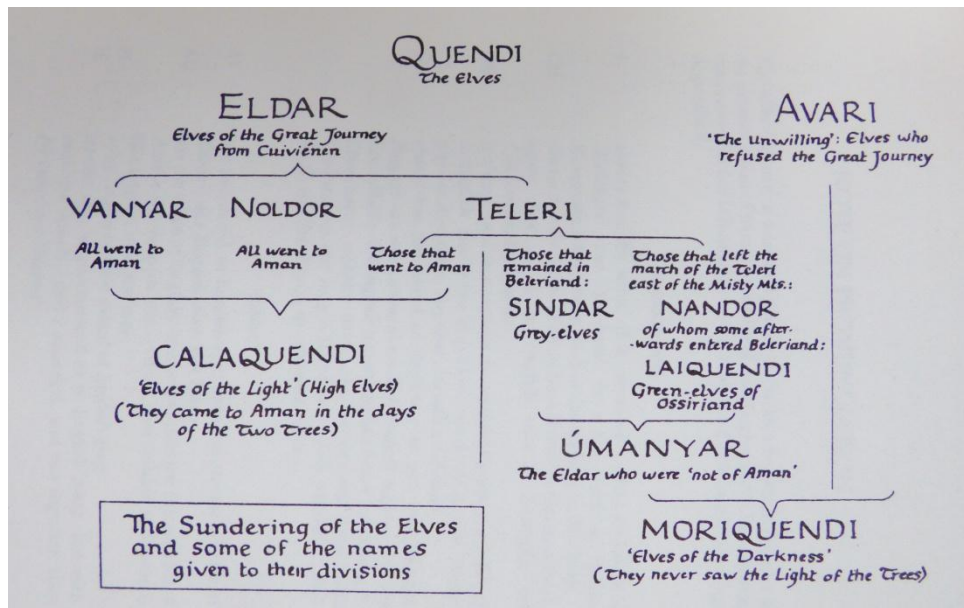 QUENDI
The Elves
ELDAR
Elves of the Great Journey
from Cuiviénen
AVARI
'The Unwilling': Elves who
refused the Great Journey
VANYAR
All went to
Aman
NOLDOR
All went to
Aman
TELERI
Those that
went to Aman
Those that
remained in
Beleriand:
SINDAR
Grey-elves
Those that left the
march of the Teleri
east of the Misty Mts.:
NANDOR
of whom some after-
-wards entered Beleriand:
LAIQUENDI
Green-elves of
Ossiriand
CALAQUENDI
'Elves of the Light' (High Elves)
(They came to Aman in the days
of the Two Trees)
ÚMANYAR
The Eldar who were 'not of Aman'
MORIQUENDI
'Elves of the Darkness'
(They never saw the Light of the Trees)
The Sundering of the Elves
and some of the names
given to their divisions